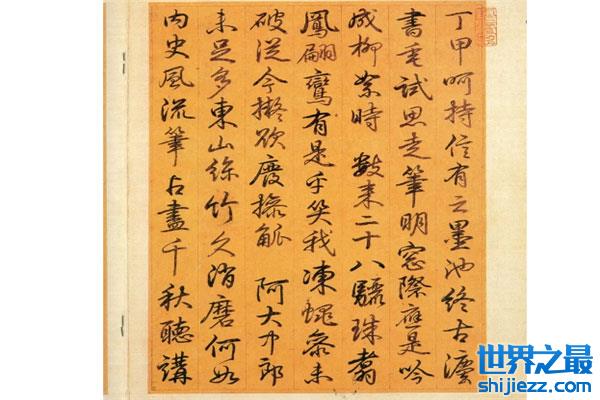 丁甲呵持信有之墨池終古灋
書垂試思走筆明窓際應是吟
成柳絮時 數來二十八驪珠翥
鳳翩鸞有是乎笑我凍蠅參未
破從今擬欲廢操觚 阿大中郎
未足多東山絲竹久消磨何如
内史風流筆占盡千秋聽講
世界之最
shijiezz.com